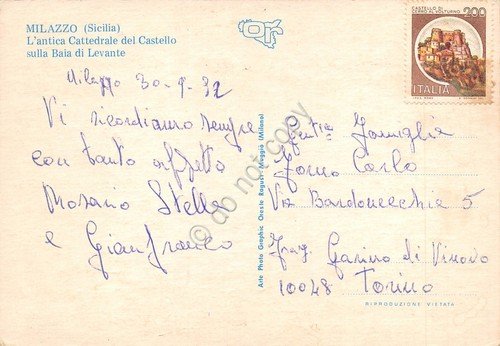 MILAZZO (Sicilia)
L'antica Cattedrale del Castello
sulla Baia di Levante
Milazzo 30-9-92
Vi ricordiamo sempre
con tanto affetto
Rosario Stella
e Gianfranco
CASTELLO DI
CERRO AL VOLTURNO
200
ITALIA
Arte Photo Graphic Oreste Ragusi - Muggiò (Milano)
Gent.ia Famiglia
Carlo
Via Bardonecchia 5
Fraz Garino di Vinovo
10048 Torino
RIPRODUZIONE VIETATA
© do not copy